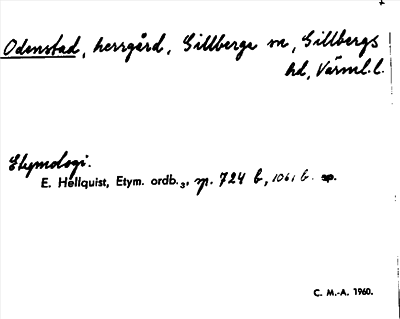 Odenstad, herrgård, Gillberga sn, Gillbergs
hd, Värml.l.
Etymologi.
E. Hellquist, Etym. ordb.3, sp. 724 b, 1061 b.
C. M.-A. 1960.